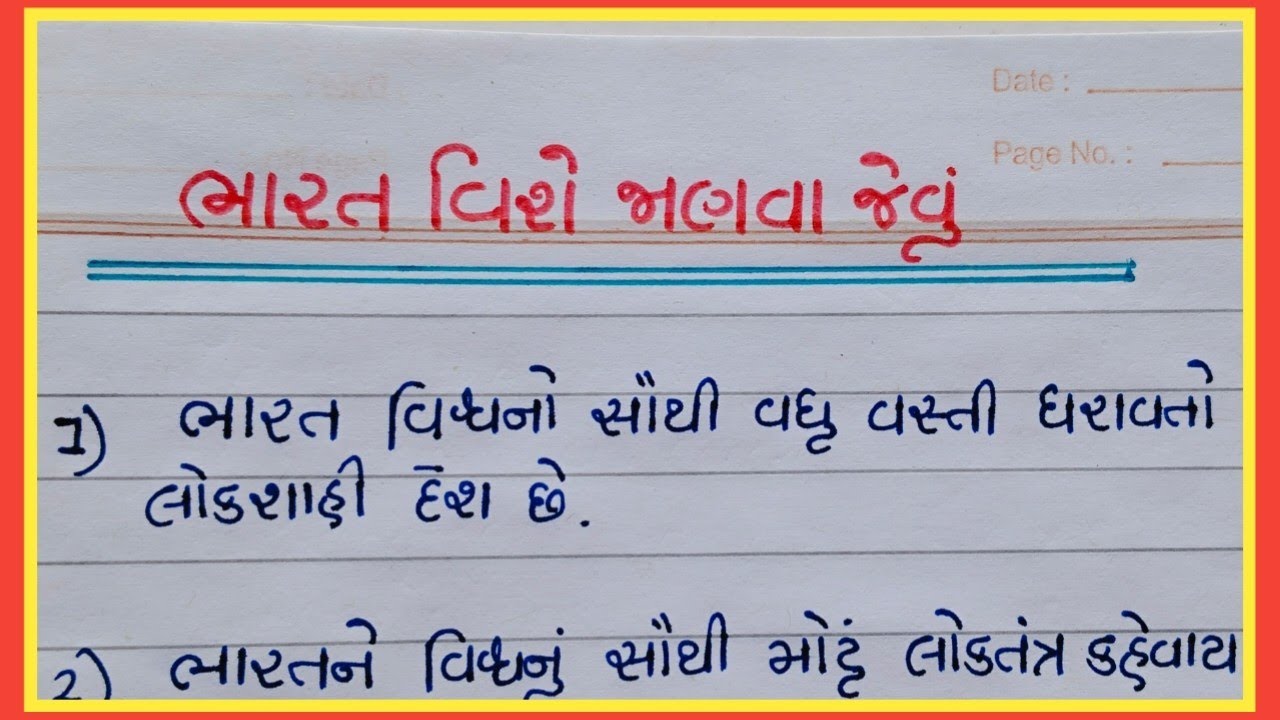 Date :
Page No. :
ભારત વિશે જાણવા જેવું
1) ભારત વિશ્વનો સૌથી વધુ વસ્તી ધરાવતો
લોકશાહી દેશ છે.
2) ભારતને વિશ્વનું સૌથી મોટું લોકતંત્ર કહેવાય